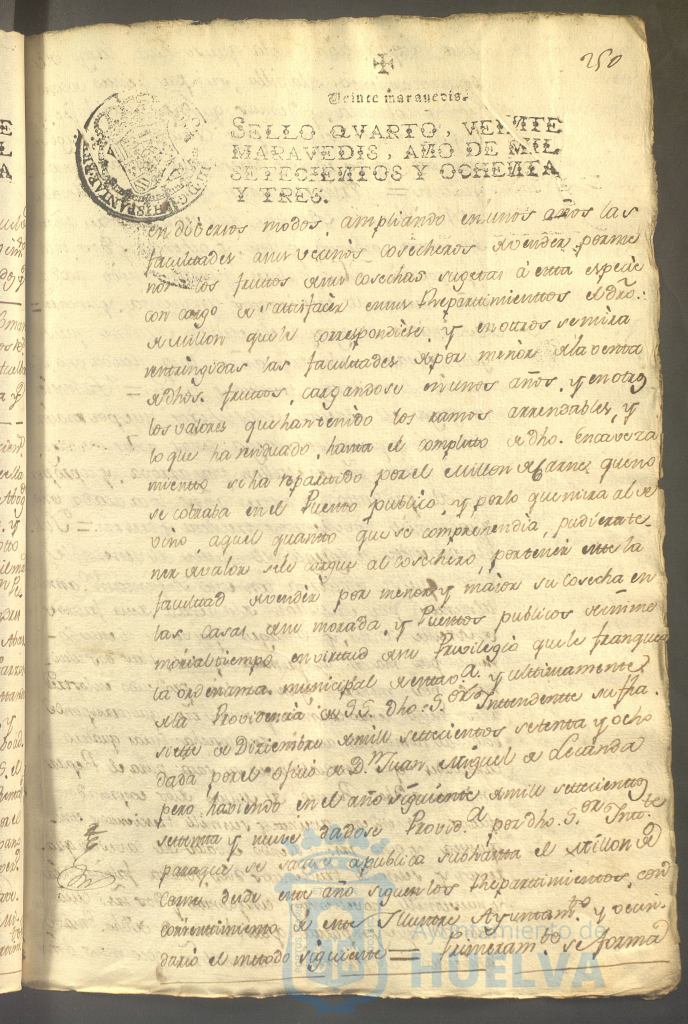 250
Veinte maravedis.
SELLO QVARTO, VEINTE
MARAVEDIS, AÑO DE MIL
SETECIENTOS Y OCHENTA
Y TRES.
HISPANIAR
en diversos modos, ampliando en unos años las
facultades a sus vecinos cosecheros de vender por me
nor los frutos de sus cosechas sugetas á esta especie
con cargo de satisfacèr en sus Repartimientos el dro.
de Millon que le correspondiese, y en otros se mira
restringidas las facultades de por menòr de la venta
de dhos. frutos, cargandose en unos años, y en otros
los valores que han tenido los ramos arrendables, y
lo que ha restado, hasta el completo de dho. Encaveza
miento se ha repartido por el Millon de Carnes que no
se cobraba en el Puesto publico, y por lo que mira al de
vino aquel quanto que se comprendia, pudiera te-
ner de valor se le cargue al cosechero, por tener este la
facultad de vender por menor y maior su cosecha en
las casas de su morada, y Puestos publicos de imme
morial tiempo en virtud de su Privilegio que le franquea
la ordenanza municipal de esta va. y ultimamente
de la Providencia de S.S. dho. Sor. Intendente su fha.
siete de Diziembre de mill setecientos setenta y ocho
dada por el oficio de Dn. Juan Miguel de Lecanda
pero haviendo en el año siguiente de mill setecientos
setenta y nueve dadose Provida. por dho. Sor. Intte.
para que se saque a publica subhasta el Millon de
como desde este año siguen los Repartimientos, con
consentimiento de este Illustre Ayuntamto. y
dario el metodo siguiente = Primeramte. se forma
Ayuntamiento de
HUELVA